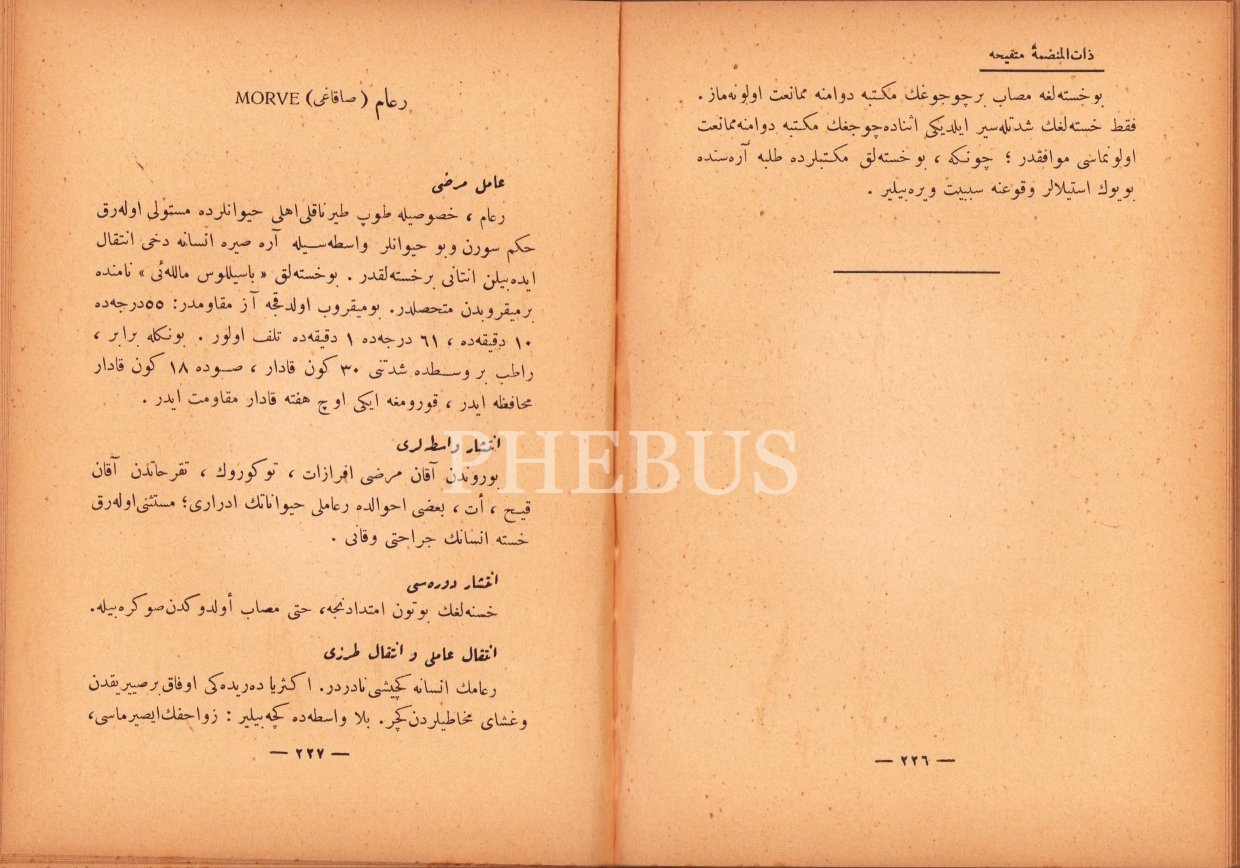 ذات‌المنضمۀ متقيحه
بوخسته‌لغه مصاب برچوجوغك مكتبه دوامنه ممانعت اولونه‌ماز .
فقط خسته‌لغك شدتله‌سير ايلديكى اثناده‌چوجغك مكتبه دوامنه‌ممانعت
اولونماسى موافقدر ؛ چونكه ، بوخسته‌لق مكتبلرده طلبه آره‌سنده
بويوك استيلالر وقوعنه سببيت ويره‌بيلير .
— ٢٢٦ —
رعام ( صاقاغى ) MORVE
عامل مرضى
رعام ، خصوصيله طوپ طيرناقلى‌اهلى حيوانلرده مستولى اوله‌رق
حكم سورن وبو حيوانلر واسطه‌سيله آره صيره انسانه دخى انتقال
ايده‌بيلن انتانى برخسته‌لقدر . بوخسته‌لق « باسيللوس ماللـه‌ئى » نامنده
برميقروبدن متحصلدر. بوميقروب اولدقجه آز مقاومدر: ٥٥درجه‌ده
١٠ دقيقه‌ده ، ٦١ درجه‌ده ١ دقيقه‌ده تلف اولور . بونكله برابر ،
راطب بر وسطده شدتنى ٣٠ كون قادار ، صوده ١٨ كون قادار
محافظه ايدر ، قورومغه ايكى اوچ هفته قادار مقاومت ايدر .
انتشار واسطه‌لرى
بوروندن آقان مرضى افرازات ، توكوروك ، تقرحاتدن آقان
قيح ، أت ، بعضى احوالده رعاملى حيواناتك ادرارى؛ مستثنى‌اوله‌رق
خسته انسانك جراحتى وقانى .
انتشار دوره‌سى
خسته‌لغك بوتون امتدادنجه، حتى مصاب أولدوكدن‌صوكره‌بيله.
انتقال عاملى و انتقال طرزى
رعامك انسانه كچيشى‌نادردر. اكثريا ده‌ريده‌كى اوفاق‌برصييريقدن
وغشاى مخاطيلردن‌كچر. بلا واسطه‌ده كچه‌بيلير : زواحفك‌ايصيرماسى،
— ٢٢٧ —
PHEBUS